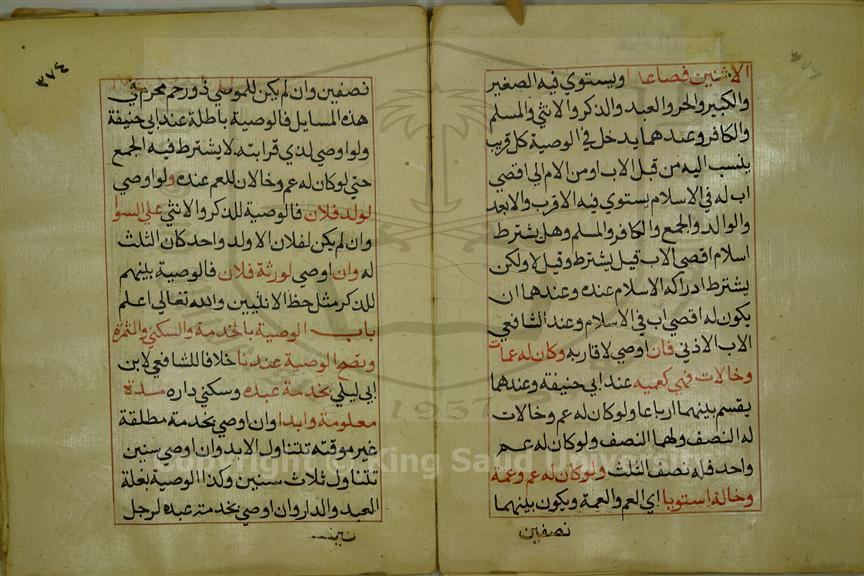 الاثنين فصاعدا ويستوي فيه الصغير
والكبير والحر والعبد والذكر والانثي والمسلم
والكافر وعندهما يدخل في الوصية كل قريب
ينسب اليه من قبل الاب او من الام الي اقصي
اب له في الاسلام يستوي فيه الاقرب والابعد
والوالد والجمع والكافر والمسلم وهل يشترط
اسلام اقصي الاب قيل يشترط وقيل لا ولكن
يشترط ادراكه الاسلام عنده وعندهما ان
يكون له اقصي اب في الاسلام وعند الشافعي
الاب الادني فان اوصي لاقاربه وكان له عمات
وخالات فهي كعميه عند ابي حنيفة وعندهما
يقسم بينهما ارباعا ولو كان له عم وخالات
له النصف ولهما النصف ولو كان له عم
واحد فله نصف الثلث ولو كان له عم وعمة
وخالة استويا اي العم والعمة ويكون بينهما
نصفين
٣٧٤
نصفين وان لم يكن للموصي ذو رحم محرم في
هذه المسايل فالوصية باطلة عند ابي حنيفة
ولو اوصي لذي قرابته لا يشترط فيه الجمع
حتي لو كان له عم وخالان للعم عنده ولو اوصي
لولد فلان فالوصية للذكر والانثي علي السوا
وان لم يكن لفلان الا ولد واحد كان الثلث
له وان اوصي لورثة فلان فالوصية بينهم
للذكر مثل حظ الانثيين والله تعالي اعلم
باب الوصية بالخدمة والسكني والثمرة
وتصح الوصية عندنا خلافا للشافعي لابن
ابي ليلي بخدمة عبده وسكني داره مدة
معلومة وابدا وان اوصي بخدمة مطلقة
غير موقته تتناول الابد وان اوصي سنين
تتناول ثلاث سنين وكذا الوصية بغلة
العبد والدار وان اوصي بخدمة عبده لرجل
Copyright © King Saud University
1957